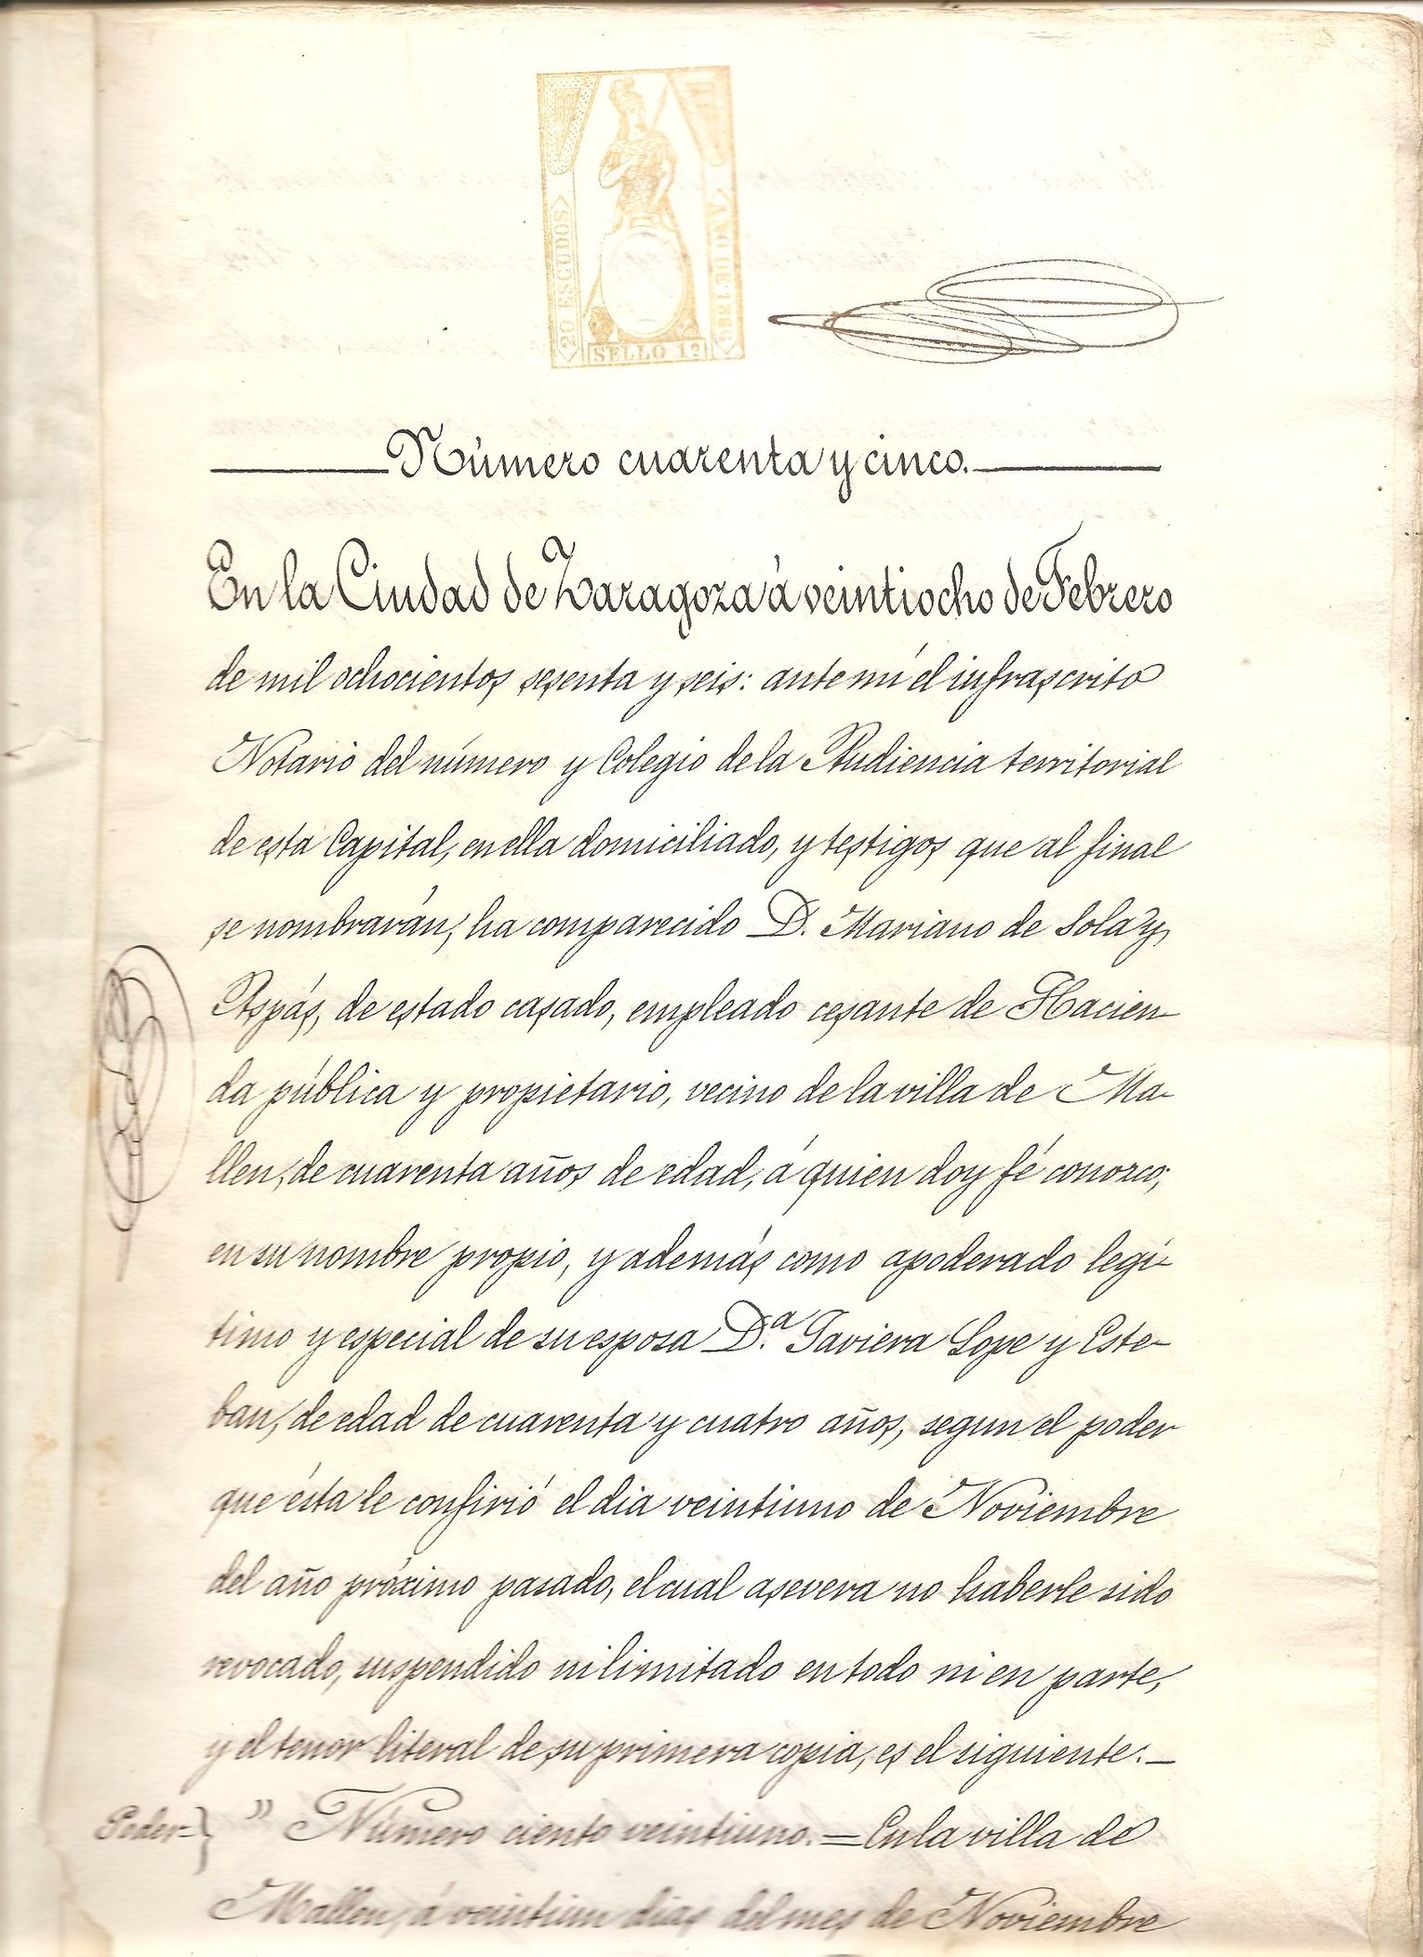 20 ESCUDOS
AÑO DE 1866
SELLO 1º
Número cuarenta y cinco.
En la Ciudad de Zaragoza á veintiocho de Febrero
de mil ochocientos sesenta y seis: ante mí el infrascrito
Notario del número y Colegio de la Audiencia territorial
de esta Capital, en ella domiciliado, y testigos que al final
se nombrarán, ha comparecido D. Mariano de Sola y
Aspás, de estado casado, empleado cesante de Hacien-
da pública y propietario, vecino de la villa de Ma-
llen, de cuarenta años de edad, á quien doy fé conozco;
en su nombre propio, y además como apoderado legí-
timo y especial de su esposa D.ª Javiera Lope y Este-
ban, de edad de cuarenta y cuatro años, segun el poder
que ésta le confirió el dia veintiuno de Noviembre
del año próximo pasado, el cual asevera no haberle sido
revocado, suspendido ni limitado en todo ni en parte,
y el tenor literal de su primera copia, es el siguiente:—
Poder=} " Número ciento veintiuno.=En la villa de
Mallen, á veintiun dias del mes de Noviembre